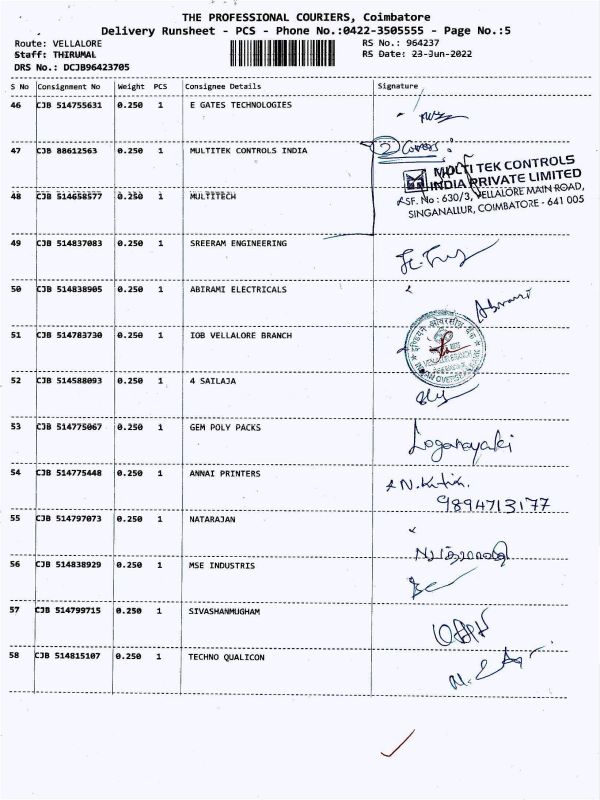 THE PROFESSIONAL COURIERS, Coimbatore
Delivery Runsheet - PCS - Phone No.:0422-3505555 - Page No.:5
Route: VELLALORE RS No.: 964237
Staff: THIRUMAL RS Date: 23-Jun-2022
DRS No.: DCJB96423705
S No Consignment No Weight PCS Consignee Details Signature
46 CJB 514755631 0.250 1 E GATES TECHNOLOGIES
47 CJB 88612563 0.250 1 MULTITEK CONTROLS INDIA
2 Covers
MULTI TEK CONTROLS
INDIA PRIVATE LIMITED
SF. No : 630/3, VELLALORE MAIN ROAD,
SINGANALLUR, COIMBATORE - 641 005
48 CJB 514658577 0.250 1 MULTITECH
49 CJB 514837083 0.250 1 SREERAM ENGINEERING
50 CJB 514838905 0.250 1 ABIRAMI ELECTRICALS
Abirami
51 CJB 514783730 0.250 1 IOB VELLALORE BRANCH
52 CJB 514588093 0.250 1 4 SAILAJA
53 CJB 514775067 0.250 1 GEM POLY PACKS
Loganayaki
54 CJB 514775448 0.250 1 ANNAI PRINTERS
9894713177
55 CJB 514797073 0.250 1 NATARAJAN
56 CJB 514838929 0.250 1 MSE INDUSTRIS
57 CJB 514799715 0.250 1 SIVASHANMUGHAM
58 CJB 514815107 0.250 1 TECHNO QUALICON